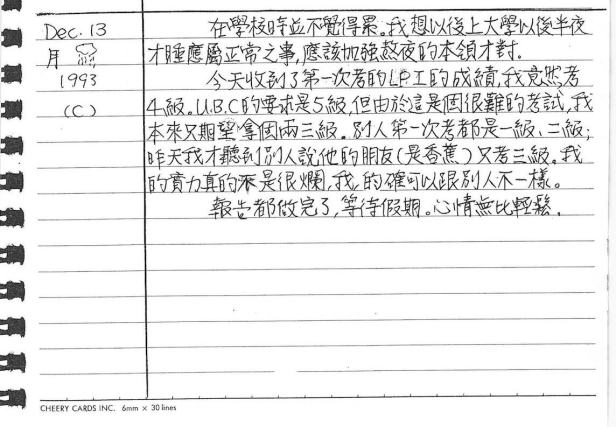 Dec. 13
月
1993
(C)
在學校時並不覺得累。我想以後上大學以後半夜
才睡應屬正常之事,應該加強熬夜的本領才對.
今天收到了第一次考的LPI的成績,我竟然考
4級。U.B.C的要求是5級,但由於這是個很難的考試,我
本來只期望拿個兩三級。別人第一次考都是一級、二級;
昨天我才聽到別人說他的朋友(是香蕉)只考三級。我
的實力真的不是很爛,我的確可以跟別人不一樣。
報告都做完了,等待假期。心情無比輕鬆.
CHEERY CARDS INC. 6mm × 30 lines